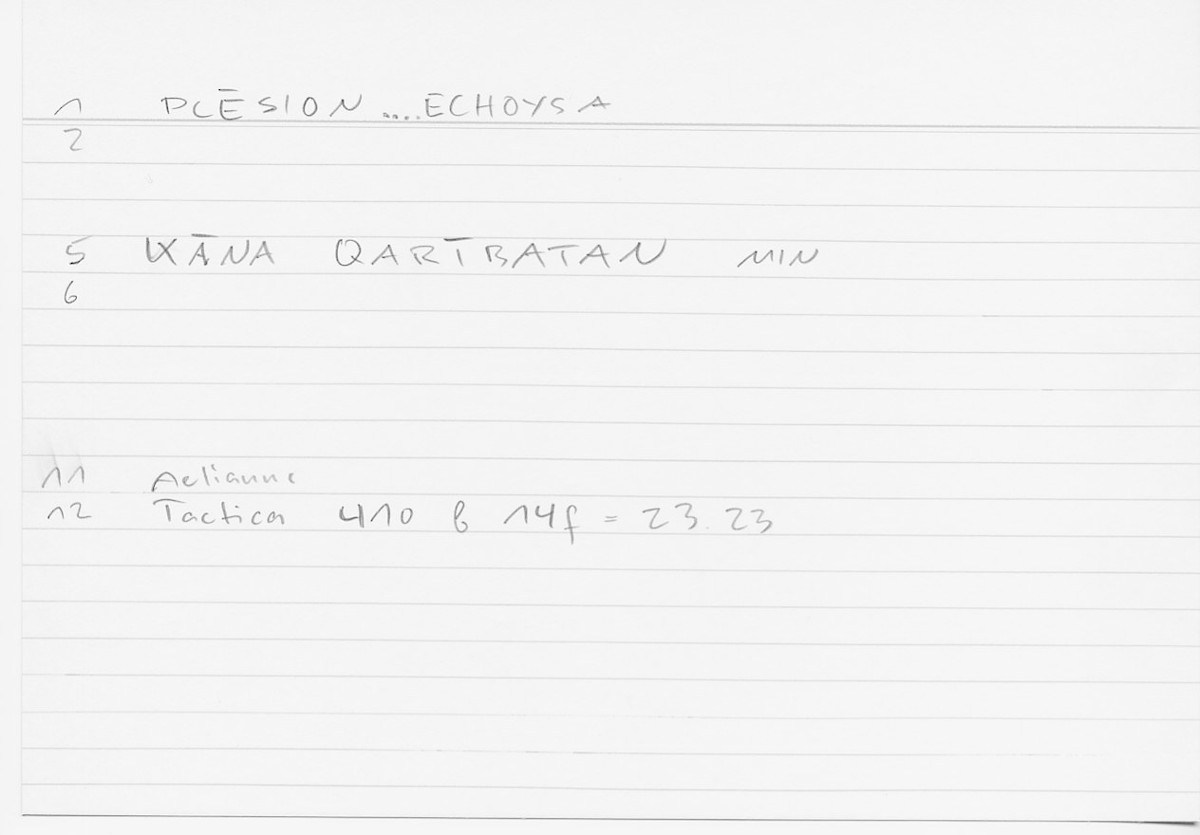 1 PLĒSION ....ECHOYSA
2
5 KĀNA QARĪBATAN MIN
6
11 Aelianus
12 Tactica 410 b 14f = 23.23